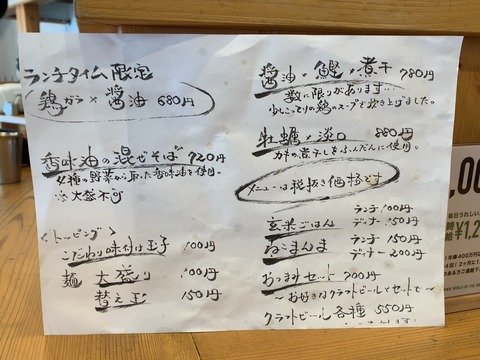 ランチタイム限定
鶏ガラ×醤油 680円
香味油の混ぜそば 720円
4種の野菜から取った香味油を使用。
※大盛不可
<トッピング>
こだわり味付け玉子 100円
麺 大盛り 100円
替え玉 150円
醤油×鰹ノ煮干 780円
数に限りがあります…
少しこってりの鶏のスープを炊き上げました。
牡蠣ノ淡口 880円
カキの煮干しをふんだんに使用。
メニューは税抜き価格です
玄米ごはん ランチ 100円
ディナー 150円
ねこまんま ランチ 150円
ディナー 200円
おつまみセット 700円
〜お好きなクラフトビールとセットで〜
クラフトビール各種 550円